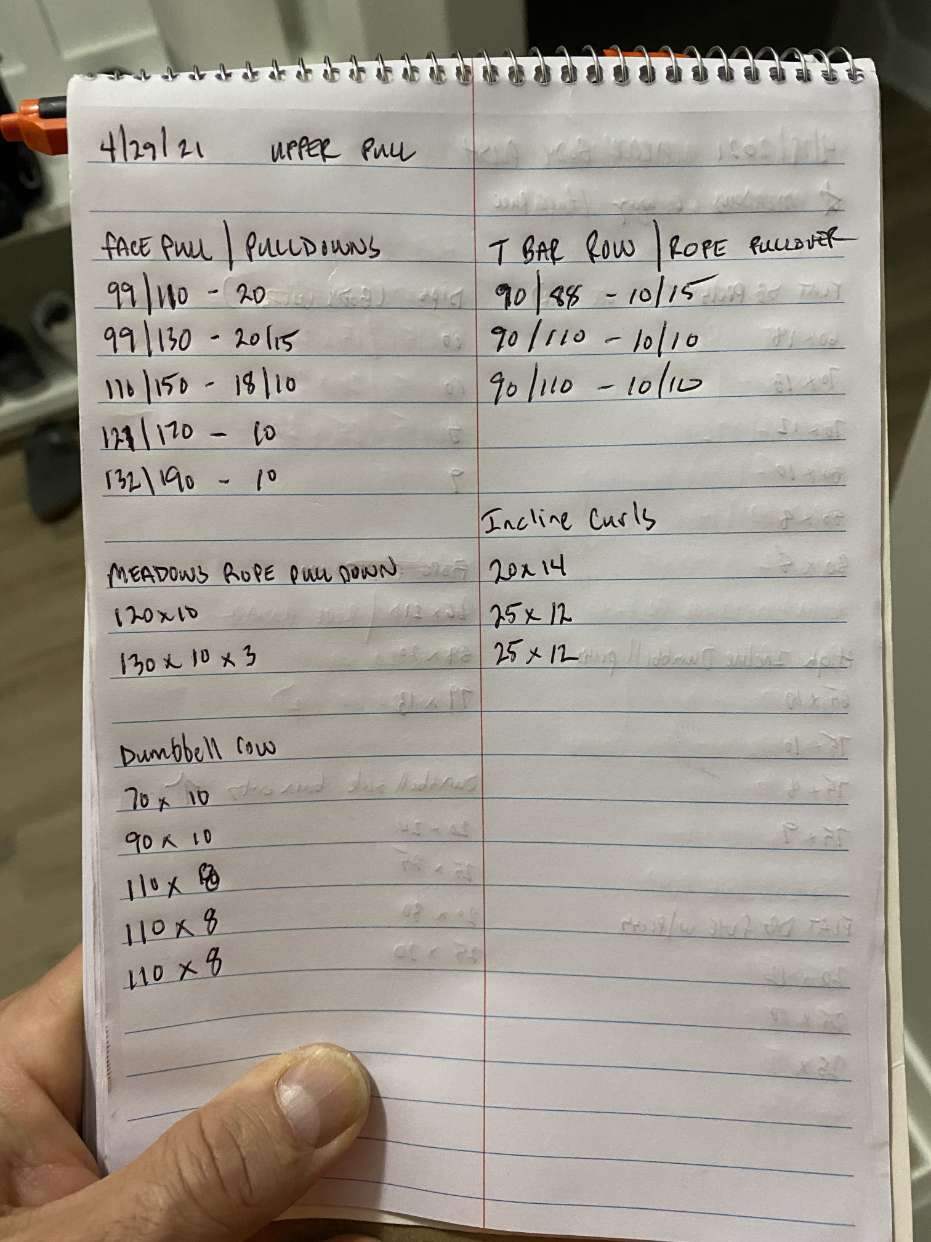 4/29/21 UPPER PULL
FACE PULL | PULLDOWNS
99/110 - 20
99/130 - 20/15
110/150 - 18/10
121/170 - 10
132/190 - 10
MEADOWS ROPE PULLDOWN
120x10
130 x 10 x 3
Dumbbell row
70 x 10
90 x 10
110 x 8
110 x 8
110 x 8
T BAR ROW | ROPE PULLOVER
90/88 - 10/15
90/110 - 10/10
90/110 - 10/10
Incline Curls
20x14
25 x 12
25 x 12